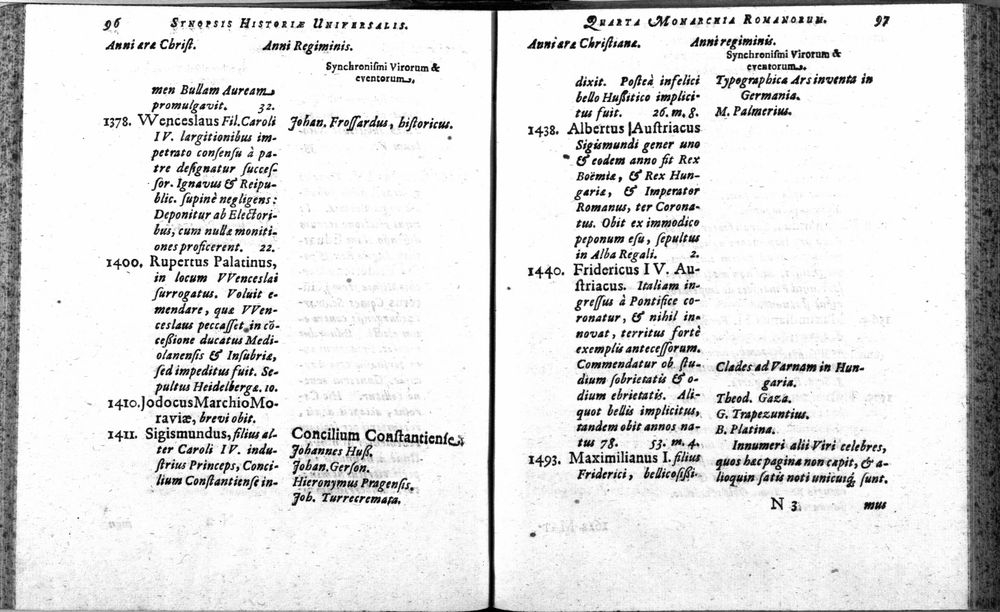 96 SYNOPSIS HISTORIÆ UNIVERSALIS.
Anni æræ Christ. Anni Regiminis.
Synchronismi Virorum &
eventorum.
men Bullam Auream
promulgavit. 32.
1378. Wenceslaus Fil. Caroli
IV. largitionibus im-
petrato consensu à pa-
tre designatur succes-
sor. Ignavus & Reipu-
blic. supinè negligens:
Deponitur ab Electori-
bus, cum nullæ moniti-
ones proficerent. 22.
1400. Rupertus Palatinus,
in locum VVenceslai
surrogatus. Voluit e-
mendare, quæ VVen-
ceslaus peccasset in cō-
cessione ducatus Medi-
olanensis & Insubriæ,
sed impeditus fuit. Se-
pultus Heidelbergæ. 10.
1410. Jodocus Marchio Mo-
raviæ, brevi obit.
1411. Sigismundus, filius al-
ter Caroli IV. indu-
strius Princeps, Conci-
lium Constantiense in-
Johan. Frossardus, historicus.
Concilium Constantiense.
Johannes Huß.
Johan. Gerson.
Hieronymus Pragensis,
Joh. Turrecremata.
QUARTA MONARCHIA ROMANORUM. 97
Anni æræ Christianæ. Anni regiminis.
Synchronismi Virorum &
eventorum.
dixit. Posteà infelici
bello Hussitico implici-
tus fuit. 26. m. 8.
1438. Albertus Austriacus
Sigismundi gener uno
& eodem anno fit Rex
Boëmiæ, & Rex Hun-
gariæ, & Imperator
Romanus, ter Corona-
tus. Obit ex immodico
peponum esu, sepultus
in Alba Regali. 2.
1440. Fridericus IV. Au-
striacus. Italiam in-
gressus à Pontifice co-
ronatur, & nihil in-
novat, territus fortè
exemplis antecessorum.
Commendatur ob stu-
dium sobrietatis & o-
dium ebrietatis. Ali-
quot bellis implicitus,
tandem obit annos na-
tus 78. 53. m. 4.
1493. Maximilianus I. filius
Friderici, bellicosissi-
Typographica Ars inventa in
Germania.
M. Palmerius.
Clades ad Varnam in Hun-
garia.
Theod. Gaza.
G. Trapezuntius.
B. Platina.
Innumeri alii Viri celebres,
quos hæc pagina non capit, & a-
lioquin satis noti unicuiq; sunt.
N 3 mus